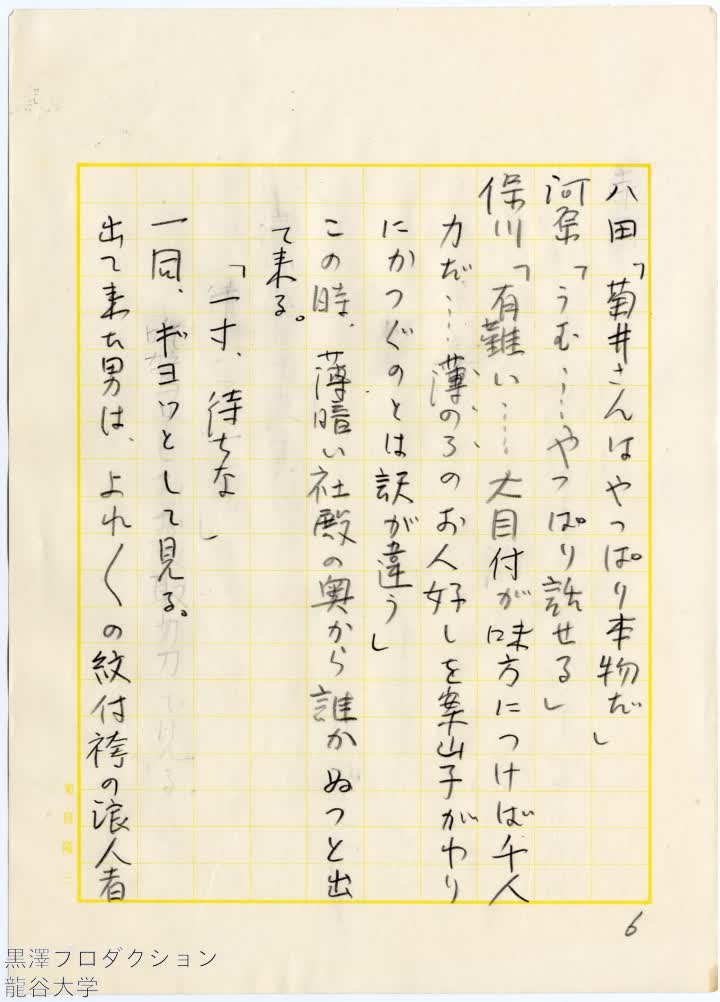 八田「菊井さんはやっぱり本物だ」
河原「うむ……やっぱり話せる」
保川「有難い……大目付が味方につけば千人
力だ……薄のろのお人好しを案山子がわり
にかつぐのとは訳が違う」
この時、薄暗い社殿の奥から誰かぬっと出
て来る。
「一寸、待ちな」
一同、ギョッとして見る。
出て来た男は、よれ〱の紋付袴の浪人者
6
黒澤プロダクション
龍谷大学